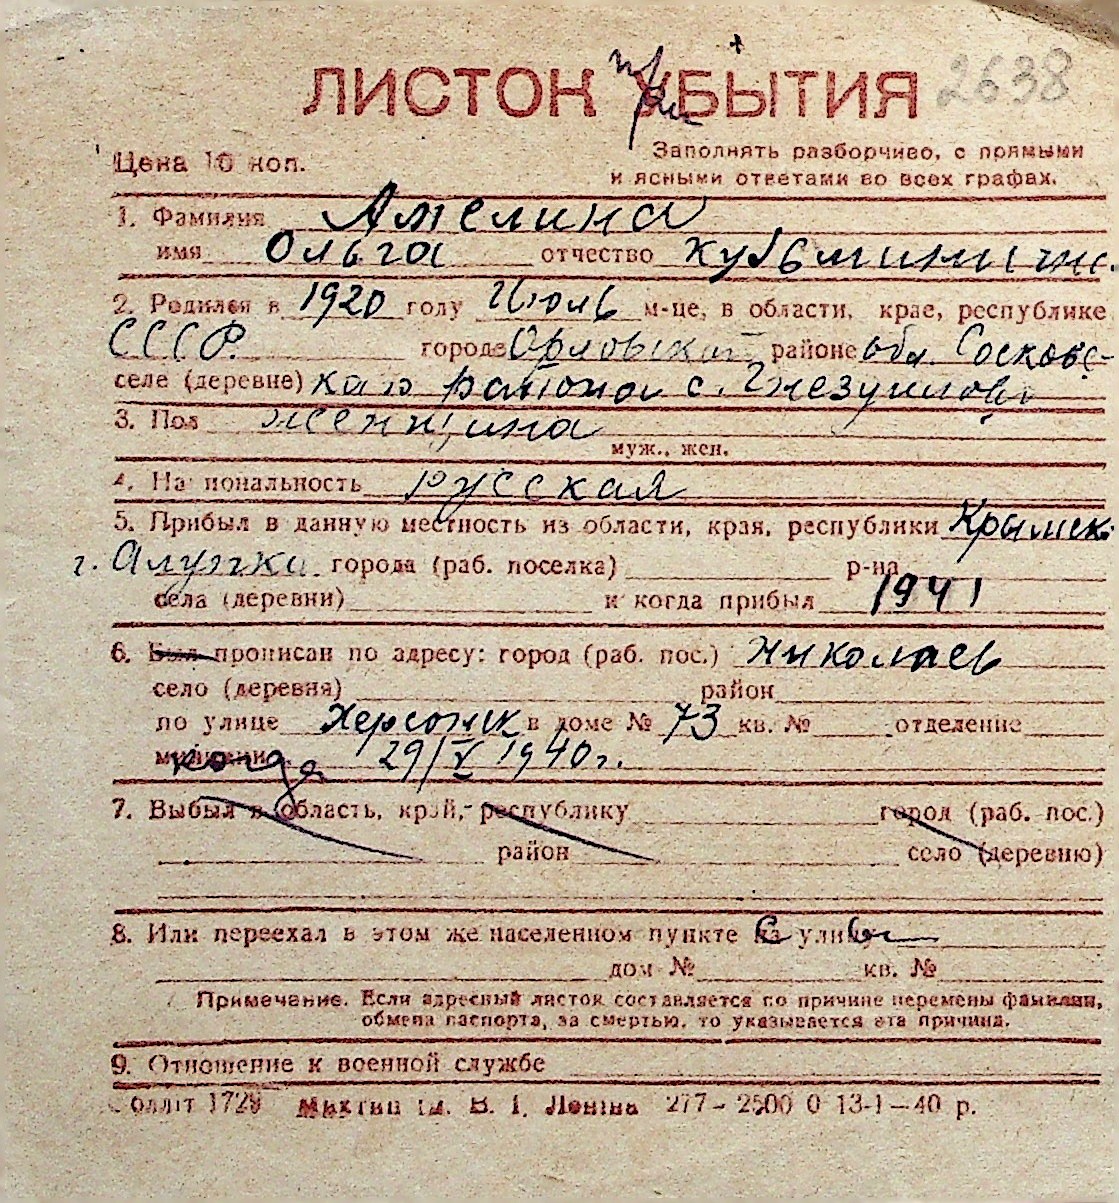 ЛИСТОК УБЫТИЯ 2638
при
Цена 10 коп.
Заполнять разборчиво, с прямыми
и ясными ответами во всех графах.
1. Фамилия Амелина
имя Ольга отчество Кузьминичн.
2. Родился в 1920 году Июль м-це, в области, крае, республике
СССР. городе Орловской районе обл. Сосковс-
селе (деревне) каго района с. Гнезуилово
3. Пол женщина
муж., жен.
4. Национальность русская
5. Прибыл в данную местность из области, края, республики Крымск.
г. Алупка города (раб. поселка) р-на
села (деревни) и когда прибыл 1941
6. Был прописан по адресу: город (раб. пос.) Николаев
село (деревня) район
по улице Херсонск в доме № 73 кв. № отделение
милиции когда 29/V 1940г.
7. Выбыл в область, край, республику город (раб. пос.)
район село (деревню)
8. Или переехал в этом же населенном пункте на улицу
дом № кв. №
Примечание. Если адресный листок составляется по причине перемены фамилии,
обмена паспорта, за смертью, то указывается эта причина.
9. Отношение к военной службе
Обллiт 1728 Миктип iм. В. I. Ленiна 277 - 2500 0 13-1-40 р.